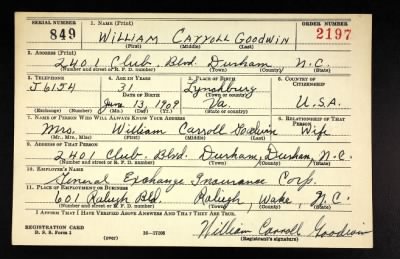 SERIAL NUMBER 1. NAME (Print) ORDER NUMBER
849 WILLIAM CARROLL GOODWIN 2197
(First) (Middle) (Last)
2. ADDRESS (Print)
2401 Club Blvd. Durham N.C.
(Number and street or R. F. D. number) (Town) (County) (State)
3. TELEPHONE 4. AGE IN YEARS 5. PLACE OF BIRTH 6. COUNTRY OF CITIZENSHIP
J6154 31 Lynchburg
DATE OF BIRTH (Town or county)
June 13, 1909 Va. U.S.A.
(Exchange) (Number) (Mo.) (Day) (Yr.) (State or country)
7. NAME OF PERSON WHO WILL ALWAYS KNOW YOUR ADDRESS 8. RELATIONSHIP OF THAT PERSON
Mrs. William Carroll Goodwin Wife
(Mr., Mrs., Miss) (First) (Middle) (Last)
9. ADDRESS OF THAT PERSON
2401 Club Blvd. Durham, Durham, N.C.
(Number and street or R. F. D. number) (Town) (County) (State)
10. EMPLOYER'S NAME
General Exchange Insurance Corp.
11. PLACE OF EMPLOYMENT OR BUSINESS
601 Raleigh Bld. Raleigh, Wake, N.C.
(Number and street or R. F. D. number) (Town) (County) (State)
I AFFIRM THAT I HAVE VERIFIED ABOVE ANSWERS AND THAT THEY ARE TRUE.
REGISTRATION CARD William Carroll Goodwin
D. S. S. Form 1 (over) 16—17105 (Registrant's signature)